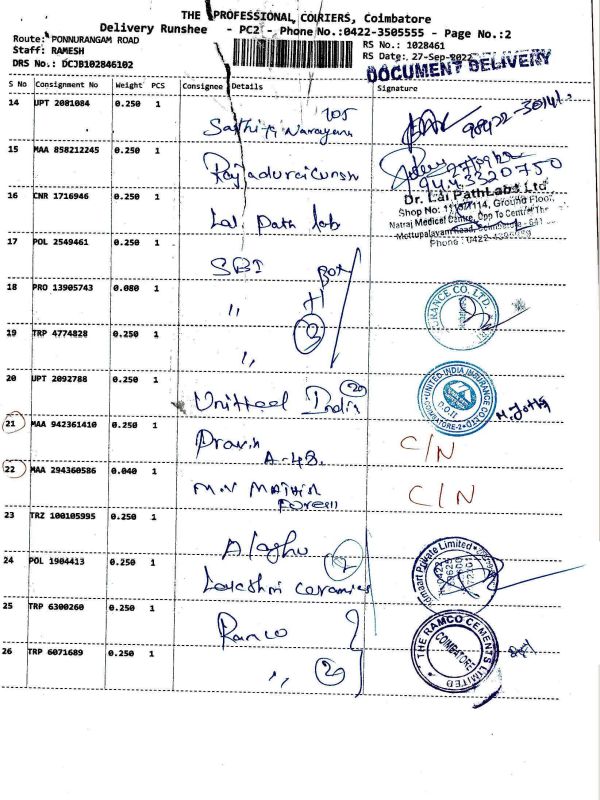 THE PROFESSIONAL COURIERS, Coimbatore
Delivery Runshee - PC2 - Phone No.:0422-3505555 - Page No.:2
Route: PONNURANGAM ROAD
RS No.: 1028461
Staff: RAMESH
RS Date: 27-Sep-2022
DRS No.: DCJB102846102
DOCUMENT DELIVERY
S No Consignment No Weight PCS Consignee Details Signature
14 UPT 2081084 0.250 1
705
Narayana
15 MAA 858212245 0.250 1
9443320750
16 CNR 1716946 0.250 1
Lal Path lab
Dr. Lal PathLabs Ltd
Shop No: 113/114, Ground Floor,
Natraj Medical Centre, Opp To Central The
Mettupalayam Road, Coimbatore - 641
Phone : 0422-
17 POL 2549461 0.250 1
SBI Box
18 PRO 13905743 0.080 1
" H
3
RANCE CO. LTD.
19 TRP 4774828 0.250 1
"
20 UPT 2092788 0.250 1
Unitteel India 20
UNITED INDIA INSURANCE CO. LTD.
D.O.II
COIMBATORE-2
21 MAA 942361410 0.250 1
Pravin
A-48.
C/N
22 MAA 294360586 0.040 1
M.N
C/N
23 TRZ 100105995 0.250 1
Alaghu
24 POL 1904413 0.250 1
Laxshmi ceramics
Private Limited
25 TRP 6300260 0.250 1
Ramco
THE RAMCO CEMENTS LIMITED
COIMBATORE
26 TRP 6071689 0.250 1
" 20